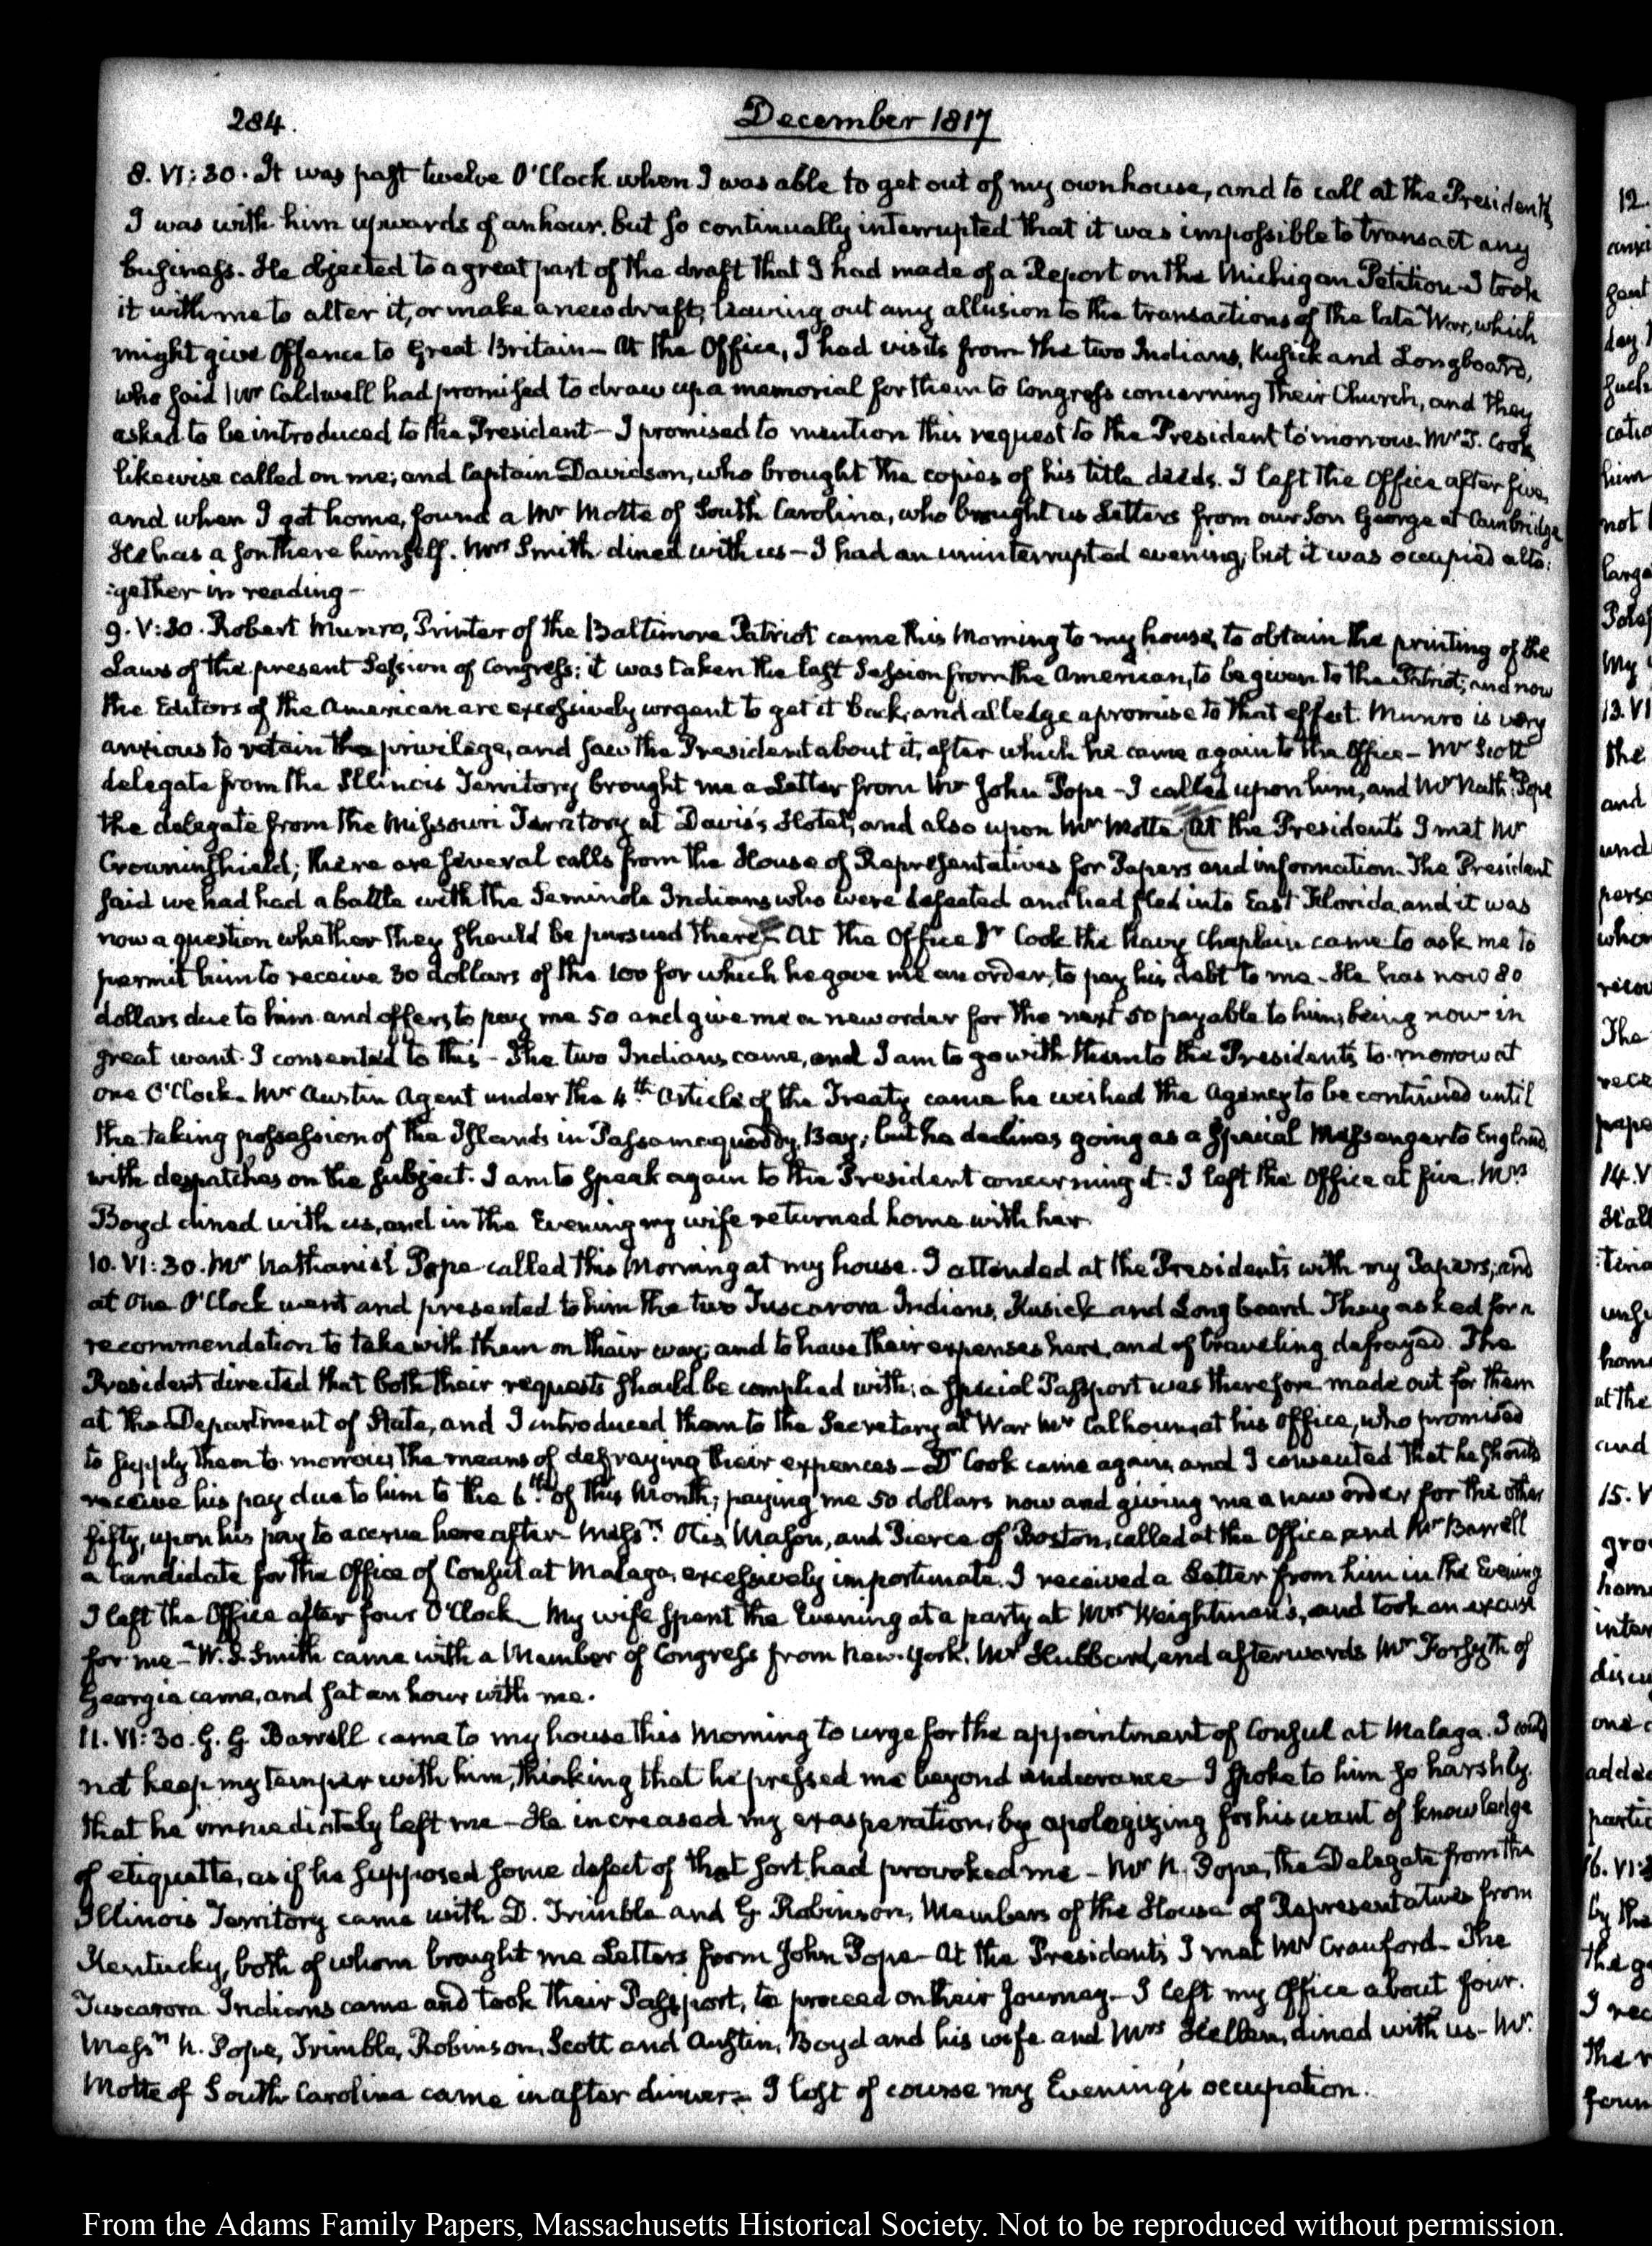 284.
December 1817
8. VI:30. It was past twelve O'Clock when I was able to get out of my own house, and to call at the President's
I was with him upwards of an hour, but so continually interrupted that it was impossible to transact any
business. He objected to a great part of the draft that I had made of a Report on the Michigan Petition—I took
it with me to alter it, or make a new draft, leaving out any allusion to the transactions of the late War, which
might give Offence to Great Britain—At the Office, I had visits from the two Indians, Kusick and Longboard,
who said Mr Caldwell had promised to draw up a memorial for them to Congress concerning their Church, and they
asked to be introduced to the President—I promised to mention this request to the President to morrow. Mr J. Cook
likewise called on me; and Captain Davidson, who brought the copies of his title deeds. I left the Office after five,
and when I got home, found a Mr Motte of South Carolina, who brought us Letters from our Son George at Cambridge
He has a son there himself. Mrs Smith dined with us—I had an uninterrupted evening, but it was occupied alto:
:gether in reading—
9. V:30. Robert Munro, Printer of the Baltimore Patriot came this Morning to my house, to obtain the printing of the
Laws of the present Session of Congress: it was taken the last Session from the American, to be given to the Patriot; and now
the Editors of the American are excessively urgent to get it back, and alledge a promise to that effect. Munro is very
anxious to retain the privilege, and saw the President about it, after which he came again to the Office—Mr Scott
delegate from the Illinois Territory brought me a Letter from Mr John Pope—I called upon him, and Mr Nathl. Pope
the delegate from the Missouri Territory at Davis's Hotel, and also upon Mr Motte. At the President's I met Mr
Crowninshield; there are several calls from the House of Representatives for Papers and information. The President
said we had had a battle with the Seminole Indians who were defeated and had fled into East Florida, and it was
now a question whether they should be pursued there—At the Office Dr Cook the Navy Chaplain came to ask me to
permit him to receive 30 dollars of the 100 for which he gave me an order, to pay his debt to me—He has now 80
dollars due to him and offers to pay me 50 and give me a new order for the next 50 payable to him, being now in
great want. I consented to this—The two Indians came, and I am to go with them to the President's to-morrow at
one O'Clock—Mr Austin Agent under the 4th Article of the Treaty came he wished the Agency to be continued until
the taking possession of the Islands in Passamaquoddy Bay; but he declines going as a special Messenger to England
with despatches on the subject. I am to speak again to the President concerning it. I left the Office at five. Mrs
Boyd dined with us, and in the Evening my wife returned home with her.
10. VI:30. Mr Nathaniel Pope called this Morning at my house. I attended at the President's with my Papers; and
at One O'Clock went and presented to him the two Tuscarora Indians, Kusick and Longboard. They asked for a
recommendation to take with them on their way; and to have their expenses here, and of traveling defrayed. The
President directed that both their requests should be complied with; a special Passport was therefore made out for them
at the Department of State, and I introduced them to the Secretary at War Mr Calhoun, at his office, who promised
to supply them to-morrow, the means of defraying their expences—Dr Cook came again, and I consented that he should
receive his pay due to him to the 6th of this Month; paying me 50 dollars now and giving me a new order for the other
fifty, upon his pay to accrue hereafter—Messrs. Otis, Mason, and Pierce of Boston, called at the Office and Mr Barrell
a Candidate for the Office of Consul at Malaga, excessively importunate. I received a Letter from him in the Evening
I left the Office after four O'Clock—My wife spent the Evening at a party at Mrs Weightman's, and took an excuse
for me—W. S. Smith came with a Member of Congress from New-York, Mr Hubbard, and afterwards Mr Forsyth of
Georgia came, and sat an hour with me.
11. VI:30. G. G. Barrell came to my house this Morning to urge for the appointment of Consul at Malaga. I could
not keep my temper with him, thinking that he pressed me beyond endurance—I spoke to him so harshly
that he immediately left me—He increased my exasperation, by apologizing for his want of knowledge
of etiquette, as if he supposed some defect of that sort had provoked me—Mr N. Pope, the Delegate from the
Illinois Territory came with D. Trimble and G. Robinson, Members of the House of Representatives from
Kentucky, both of whom brought me Letters from John Pope—At the President's I met Mr Crauford—The
Tuscarora Indians came and took their Passport, to proceed on their Journey—I left my Office about four.
Messrs N. Pope, Trimble, Robinson, Scott and Austin, Boyd and his wife and Mrs Hellen, dined with us—Mr.
Motte of South Carolina came in after dinner—I lost of course my Evening's occupation.
From the Adams Family Papers, Massachusetts Historical Society. Not to be reproduced without permission.